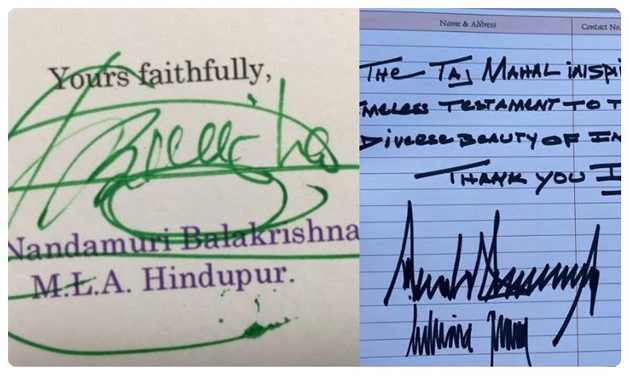 Yours faithfully,
Nandamuri Balakrishna
M.L.A. Hindupur.
Name & Address Contact No.
THE TAJ MAHAL INSPI
MELESS TESTAMENT TO T
DIVERSE BEAUTY OF IN
THANK YOU I